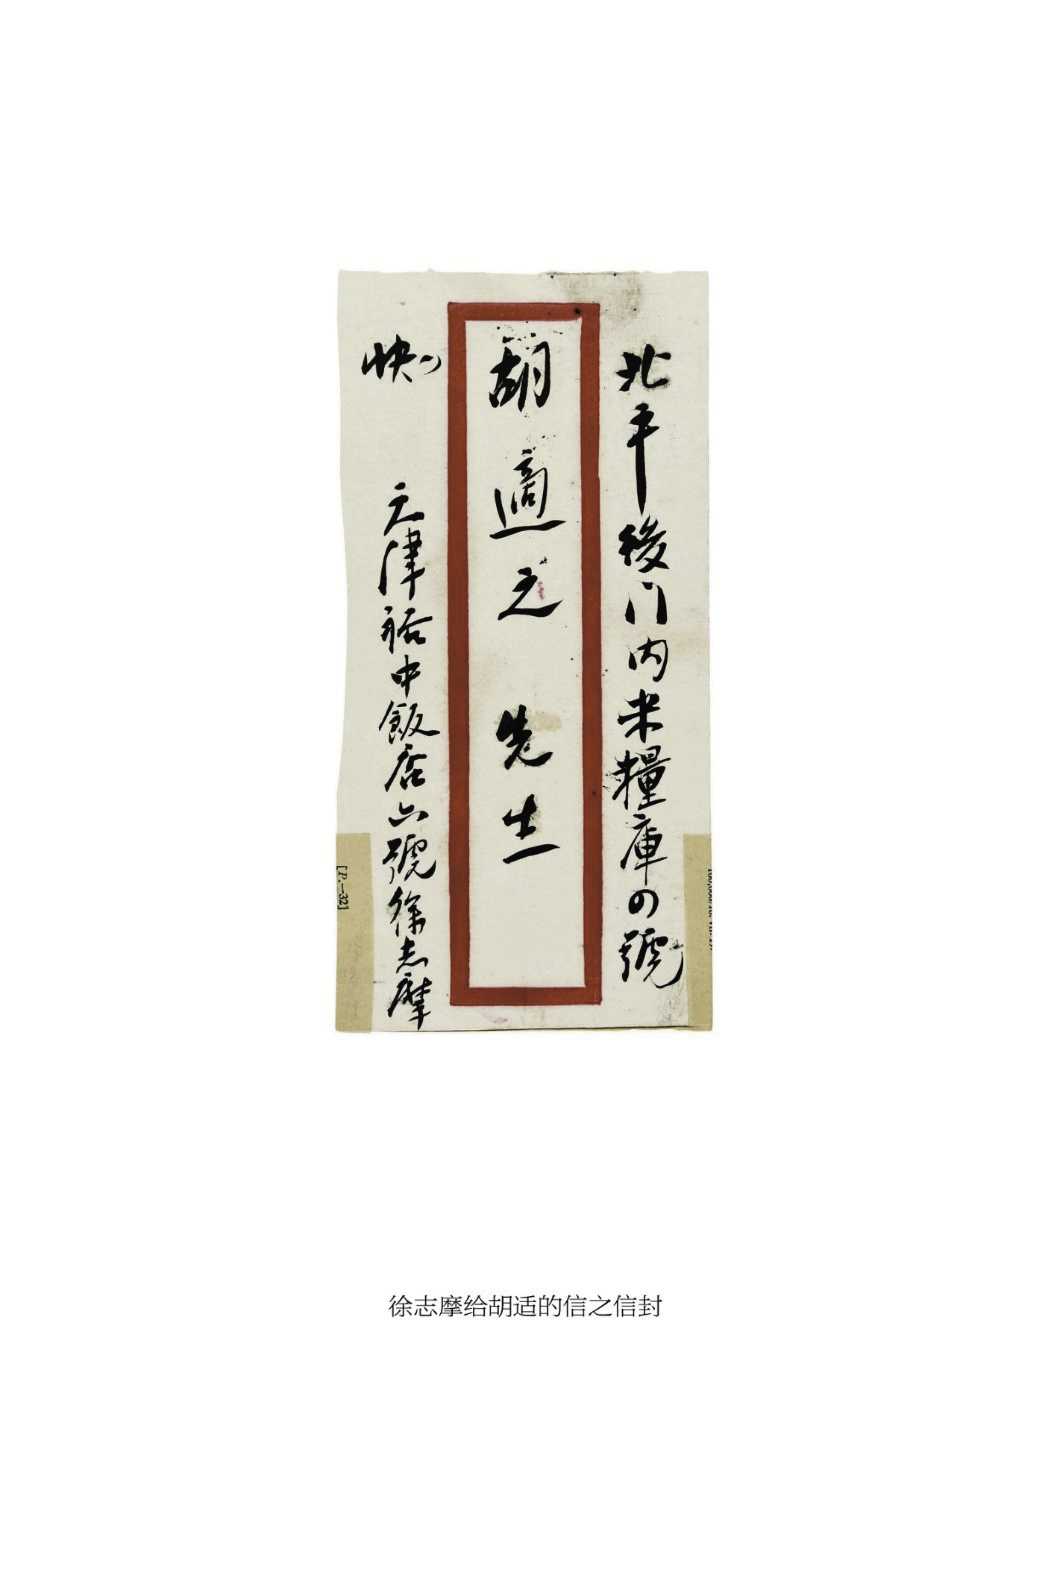 北平後門内米糧庫の號
胡適之 先生
快
天津裕中飯店六號徐志摩
[P.—32]
徐志摩给胡适的信之信封